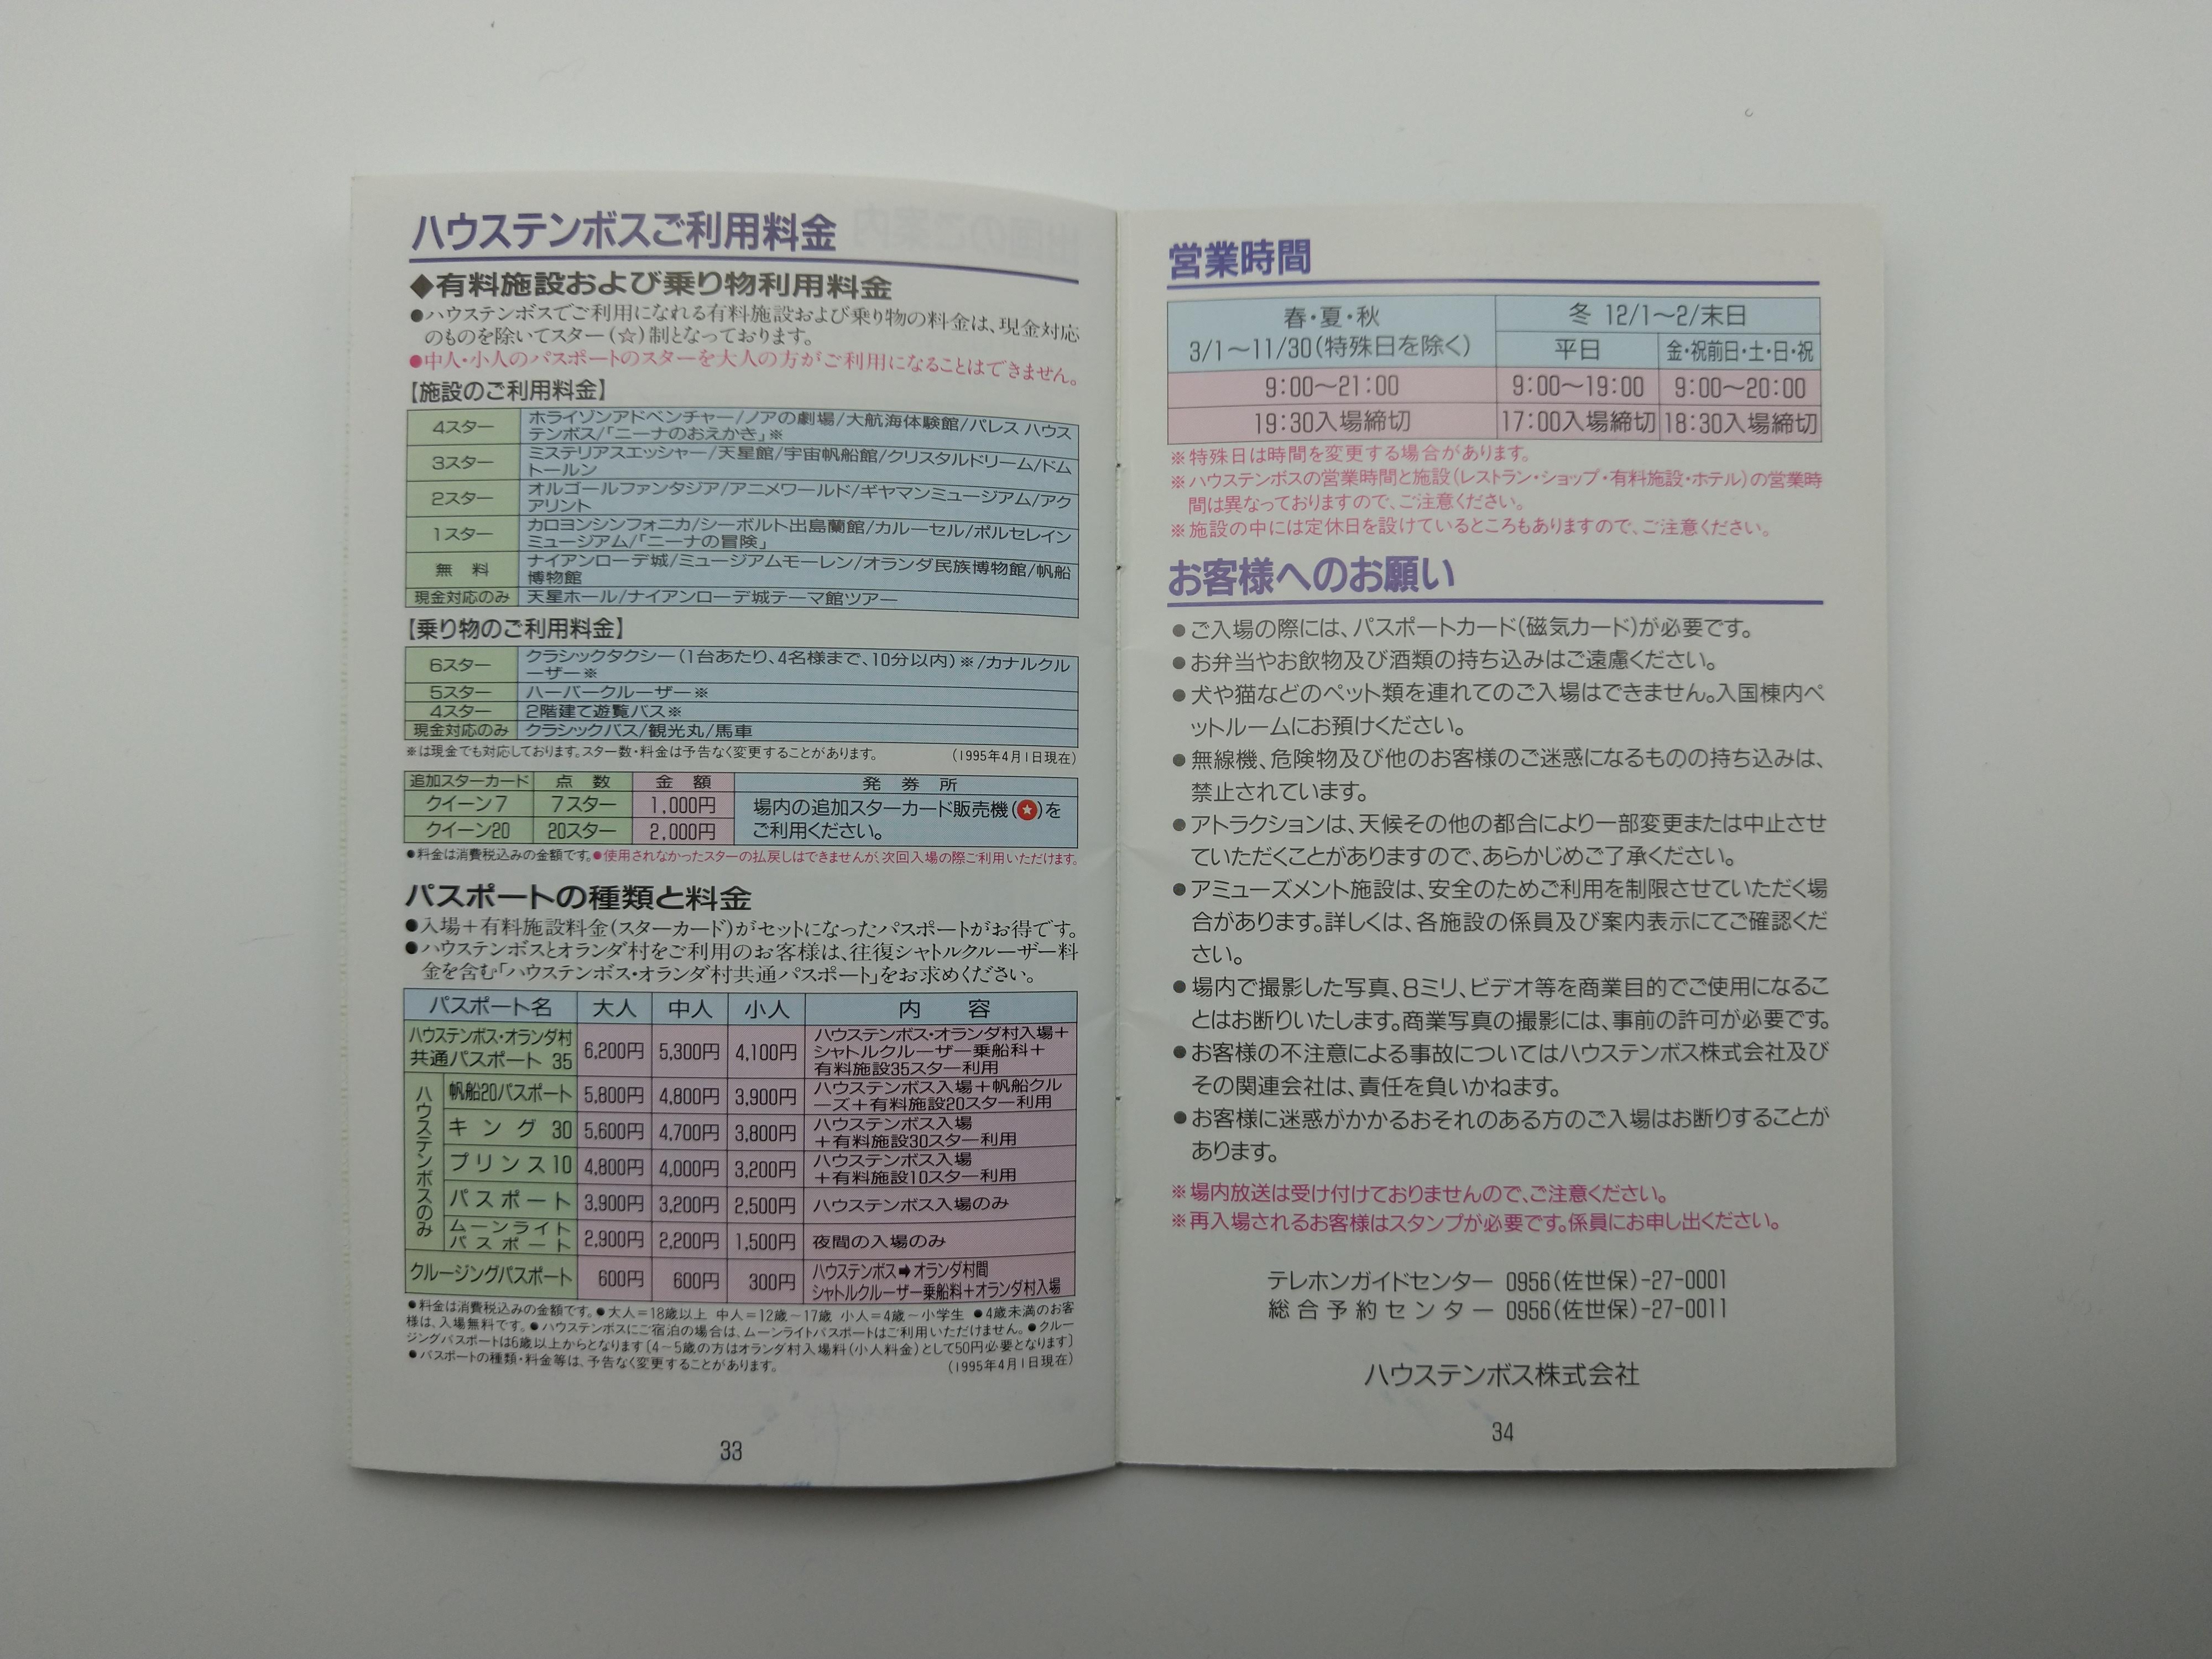 ハウステンボスご利用料金
◆有料施設および乗り物利用料金
●ハウステンボスでご利用になれる有料施設および乗り物の料金は、現金対応
のものを除いてスター(☆)制となっております。
●中人・小人のパスポートのスターを大人の方がご利用になることはできません。
【施設のご利用料金】
4スター ホライゾンアドベンチャー/ノアの劇場/大航海体験館/パレス ハウス
テンボス/「ニーナのおえかき」※
3スター ミステリアスエッシャー/天星館/宇宙帆船館/クリスタルドリーム/ドム
トールン
2スター オルゴールファンタジア/アニメワールド/ギヤマンミュージアム/アク
アリント
1スター カロヨンシンフォニカ/シーボルト出島蘭館/カルーセル/ポルセレイン
ミュージアム/「ニーナの冒険」
無料 ナイアンローデ城/ミュージアムモーレン/オランダ民族博物館/帆船
博物館
現金対応のみ 天星ホール/ナイアンローデ城テーマ館ツアー
【乗り物のご利用料金】
6スター クラシックタクシー(1台あたり、4名様まで、10分以内)※/カナルクル
ーザー※
5スター ハーバークルーザー※
4スター 2階建て遊覧バス※
現金対応のみ クラシックバス/観光丸/馬車
※は現金でも対応しております。スター数・料金は予告なく変更することがあります。 (1995年4月1日現在)
追加スターカード 点数 金額 発券所
クイーン7 7スター 1,000円 場内の追加スターカード販売機(★)を
クイーン20 20スター 2,000円 ご利用ください。
●料金は消費税込みの金額です。●使用されなかったスターの払戻しはできませんが、次回入場の際ご利用いただけます。
パスポートの種類と料金
●入場+有料施設料金(スターカード)がセットになったパスポートがお得です。
●ハウステンボスとオランダ村をご利用のお客様は、往復シャトルクルーザー料
金を含む「ハウステンボス・オランダ村共通パスポート」をお求めください。
パスポート名 大人 中人 小人 内容
ハウステンボス・オランダ村
共通パスポート 35 6,200円 5,300円 4,100円 ハウステンボス・オランダ村入場+
シャトルクルーザー乗船料+
有料施設35スター利用
ハウステンボスのみ
帆船20パスポート 5,800円 4,800円 3,900円 ハウステンボス入場+帆船クル
ーズ+有料施設20スター利用
キング 30 5,600円 4,700円 3,800円 ハウステンボス入場
+有料施設30スター利用
プリンス10 4,800円 4,000円 3,200円 ハウステンボス入場
+有料施設10スター利用
パスポート 3,900円 3,200円 2,500円 ハウステンボス入場のみ
ムーンライト
パスポート 2,900円 2,200円 1,500円 夜間の入場のみ
クルージングパスポート 600円 600円 300円 ハウステンボス➡オランダ村間
シャトルクルーザー乗船料+オランダ村入場
●料金は消費税込みの金額です。●大人=18歳以上 中人=12歳~17歳 小人=4歳~小学生 ●4歳未満のお客
様は、入場無料です。●ハウステンボスにご宿泊の場合は、ムーンライトパスポートはご利用いただけません。●クルー
ジングパスポートは6歳以上からとなります〔4~5歳の方はオランダ村入場料(小人料金)として50円必要となります〕
●パスポートの種類・料金等は、予告なく変更することがあります。 (1995年4月1日現在)
33
営業時間
春・夏・秋 冬 12/1~2/末日
3/1~11/30(特殊日を除く) 平日 金・祝前日・土・日・祝
9:00~21:00 9:00~19:00 9:00~20:00
19:30入場締切 17:00入場締切 18:30入場締切
※特殊日は時間を変更する場合があります。
※ハウステンボスの営業時間と施設(レストラン・ショップ・有料施設・ホテル)の営業時
間は異なっておりますので、ご注意ください。
※施設の中には定休日を設けているところもありますので、ご注意ください。
お客様へのお願い
●ご入場の際には、パスポートカード(磁気カード)が必要です。
●お弁当やお飲物及び酒類の持ち込みはご遠慮ください。
●犬や猫などのペット類を連れてのご入場はできません。入国棟内ペ
ットルームにお預けください。
●無線機、危険物及び他のお客様のご迷惑になるものの持ち込みは、
禁止されています。
●アトラクションは、天候その他の都合により一部変更または中止させ
ていただくことがありますので、あらかじめご了承ください。
●アミューズメント施設は、安全のためご利用を制限させていただく場
合があります。詳しくは、各施設の係員及び案内表示にてご確認くだ
さい。
●場内で撮影した写真、8ミリ、ビデオ等を商業目的でご使用になるこ
とはお断りいたします。商業写真の撮影には、事前の許可が必要です。
●お客様の不注意による事故についてはハウステンボス株式会社及び
その関連会社は、責任を負いかねます。
●お客様に迷惑がかかるおそれのある方のご入場はお断りすることが
あります。
※場内放送は受け付けておりませんので、ご注意ください。
※再入場されるお客様はスタンプが必要です。係員にお申し出ください。
テレホンガイドセンター 0956(佐世保)-27-0001
総合予約センター 0956(佐世保)-27-0011
ハウステンボス株式会社
34